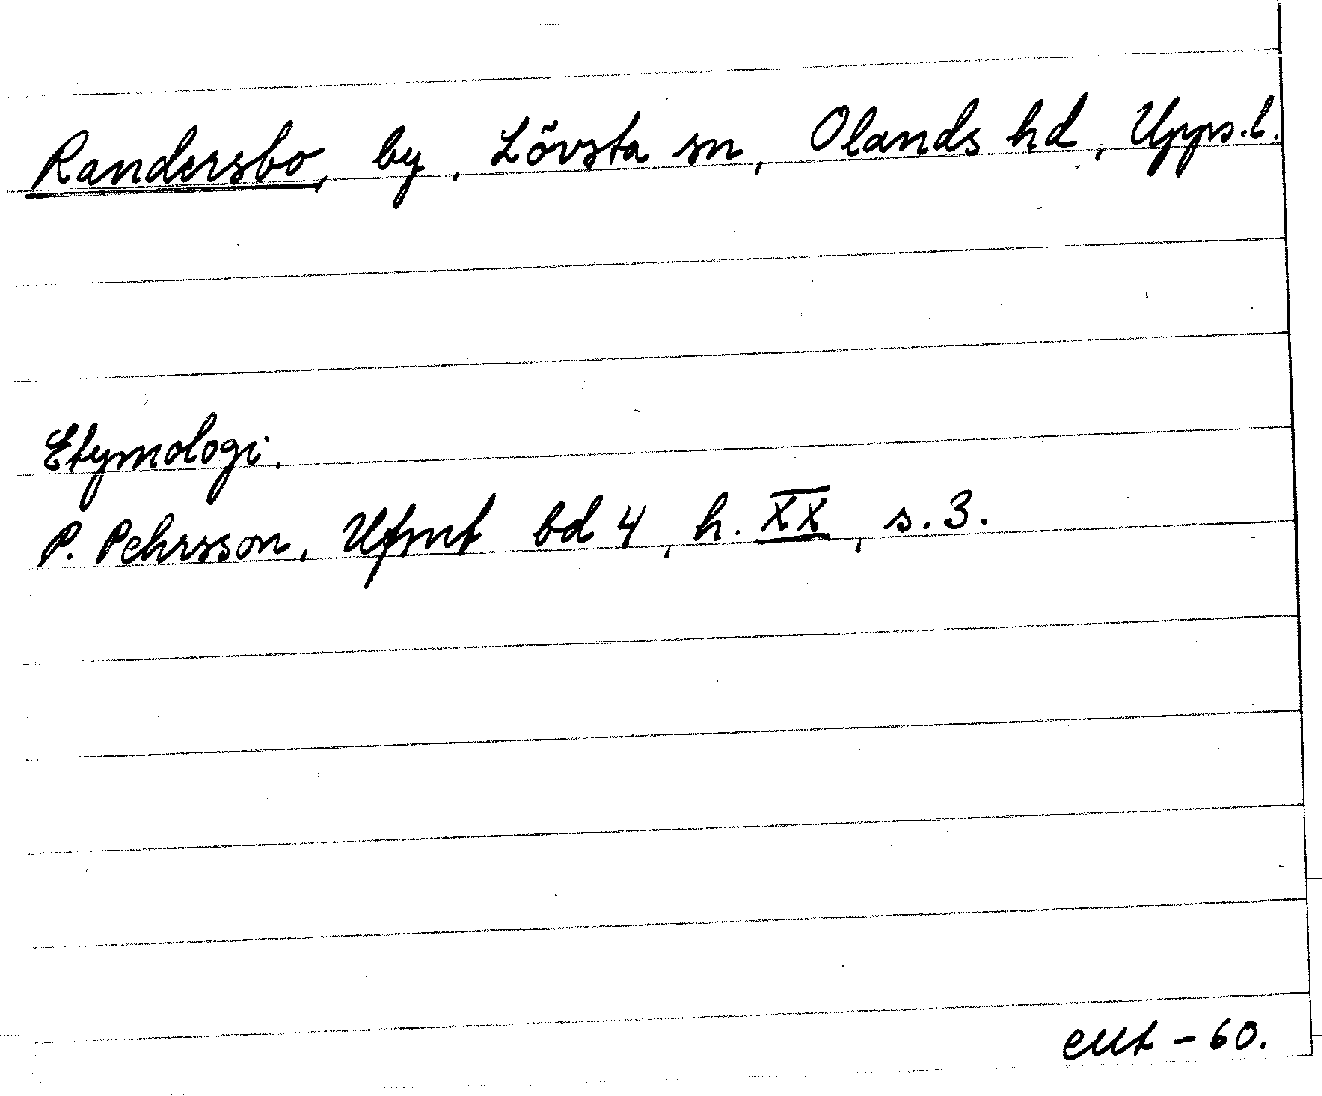 Randersbo, by, Lövsta sn, Olands hd, Upps.l.
Etymologi.
P. Pehrsson, Ufmf bd 4, h. XX, s. 3.
- 60.